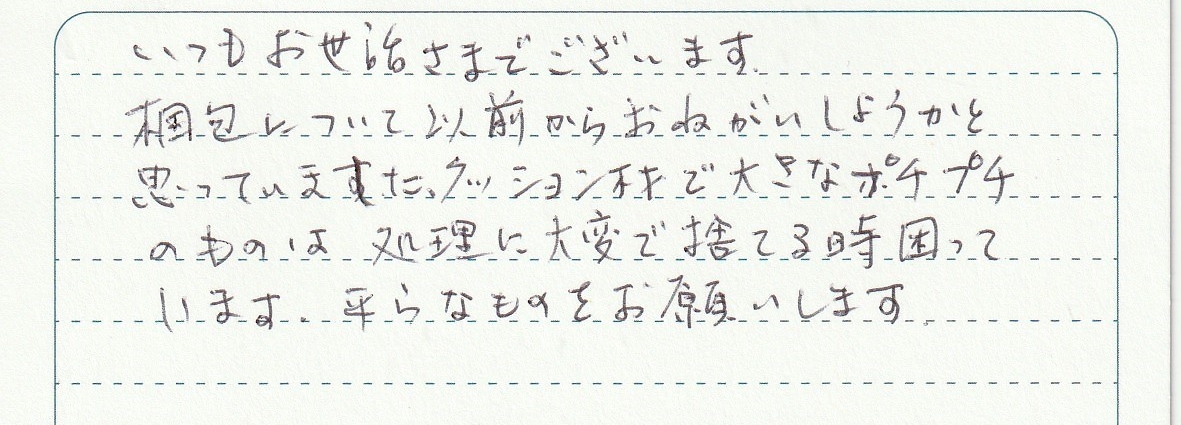 いつもお世話さまでございます。
梱包について以前からおねがいしようかと
思っていますた、クッション材で大きなポチプチ
のものは処理に大変で捨てる時困って
います。平らなものをお願いします。